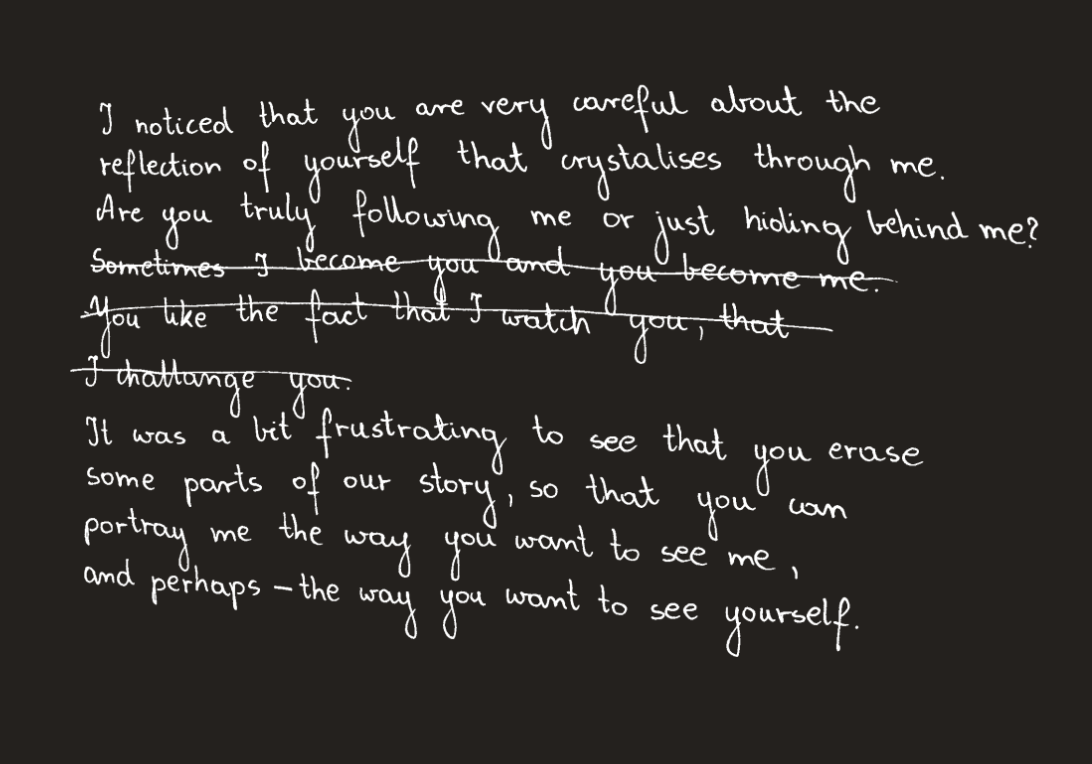 I noticed that you are very careful about the
reflection of yourself that crystalises through me.
Are you truly following me or just hiding behind me?
Sometimes I become you and you become me.
You like the fact that I watch you, that
I challange you.
It was a bit frustrating to see that you erase
some parts of our story, so that you can
portray me the way you want to see me,
and perhaps – the way you want to see yourself.